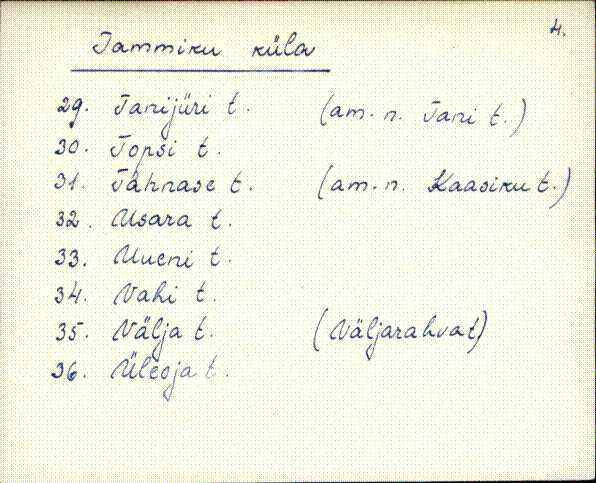 4.
Tammiku küla
29. Tanijüri t. (am. n. Tani t.)
30. Topsi t.
31. Tähnase t. (am. n. Kaasiku t.)
32. Usara t.
33. Uueni t.
34. Vahi t.
35. Välja t. (Väljarahvat)
36. Üleoja t.